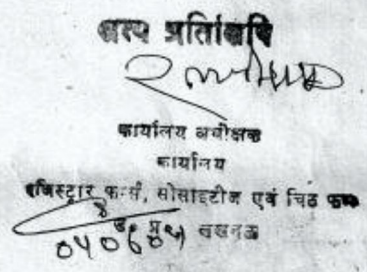 सत्य प्रतिलिपि
कार्यालय अधीक्षक
कार्यालय
रजिस्ट्रार फर्म्स, सोसाइटीज एवं चिट फण्ड
उ० प्र० लखनऊ